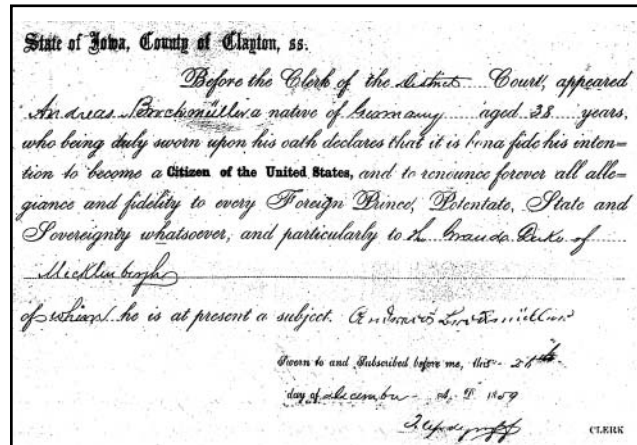 State of Iowa, County of Clayton, ss.
Before the Clerk of the District Court, appeared
Andreas a native of Germany aged 38 years,
who being duly sworn upon his oath declares that it is bona fide his inten=
tion to become a Citizen of the United States, and to renounce forever all alle=
giance and fidelity to every Foreign Prince, Potentate, State and
Sovereignty whatsoever, and particularly to Duke of
of whom he is at present a subject.
Sworn to and Subscribed before me, this
day of December A. D. 1859
CLERK